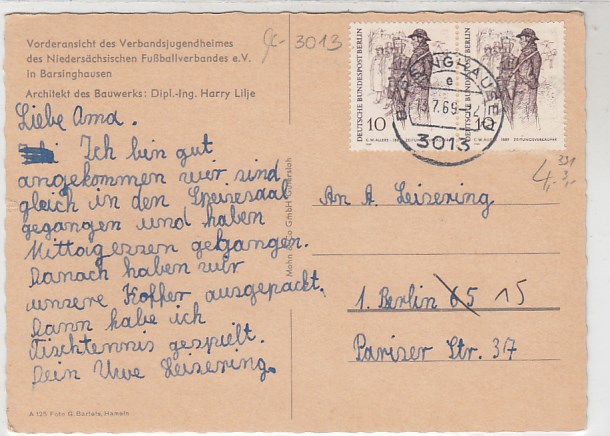 Vorderansicht des Verbandsjugendheimes
des Niedersächsischen Fußballverbandes e.V.
in Barsinghausen
Architekt des Bauwerks: Dipl.-Ing. Harry Lilje
Liebe Oma.
Ich bin gut
angekommen wir sind
gleich in den Speisesaal
gegangen und haben
Mittagessen gegangen.
Danach haben wir
unsere Koffer ausgepackt.
Dann habe ich
Tischtennis gespielt.
Dein Uwe Leisering.
A 125 Foto G. Bartels, Hameln
Mohn & Co GmbH Gütersloh
3013
DEUTSCHE BUNDESPOST BERLIN
10
DEUTSCHE BUNDESPOST BERLIN
10
BARSINGHAUSEN
e
13.7.69-12
3013
331
4,- 3,-
An A. Leisering
1. Berlin 65 15
Pariser Str. 37